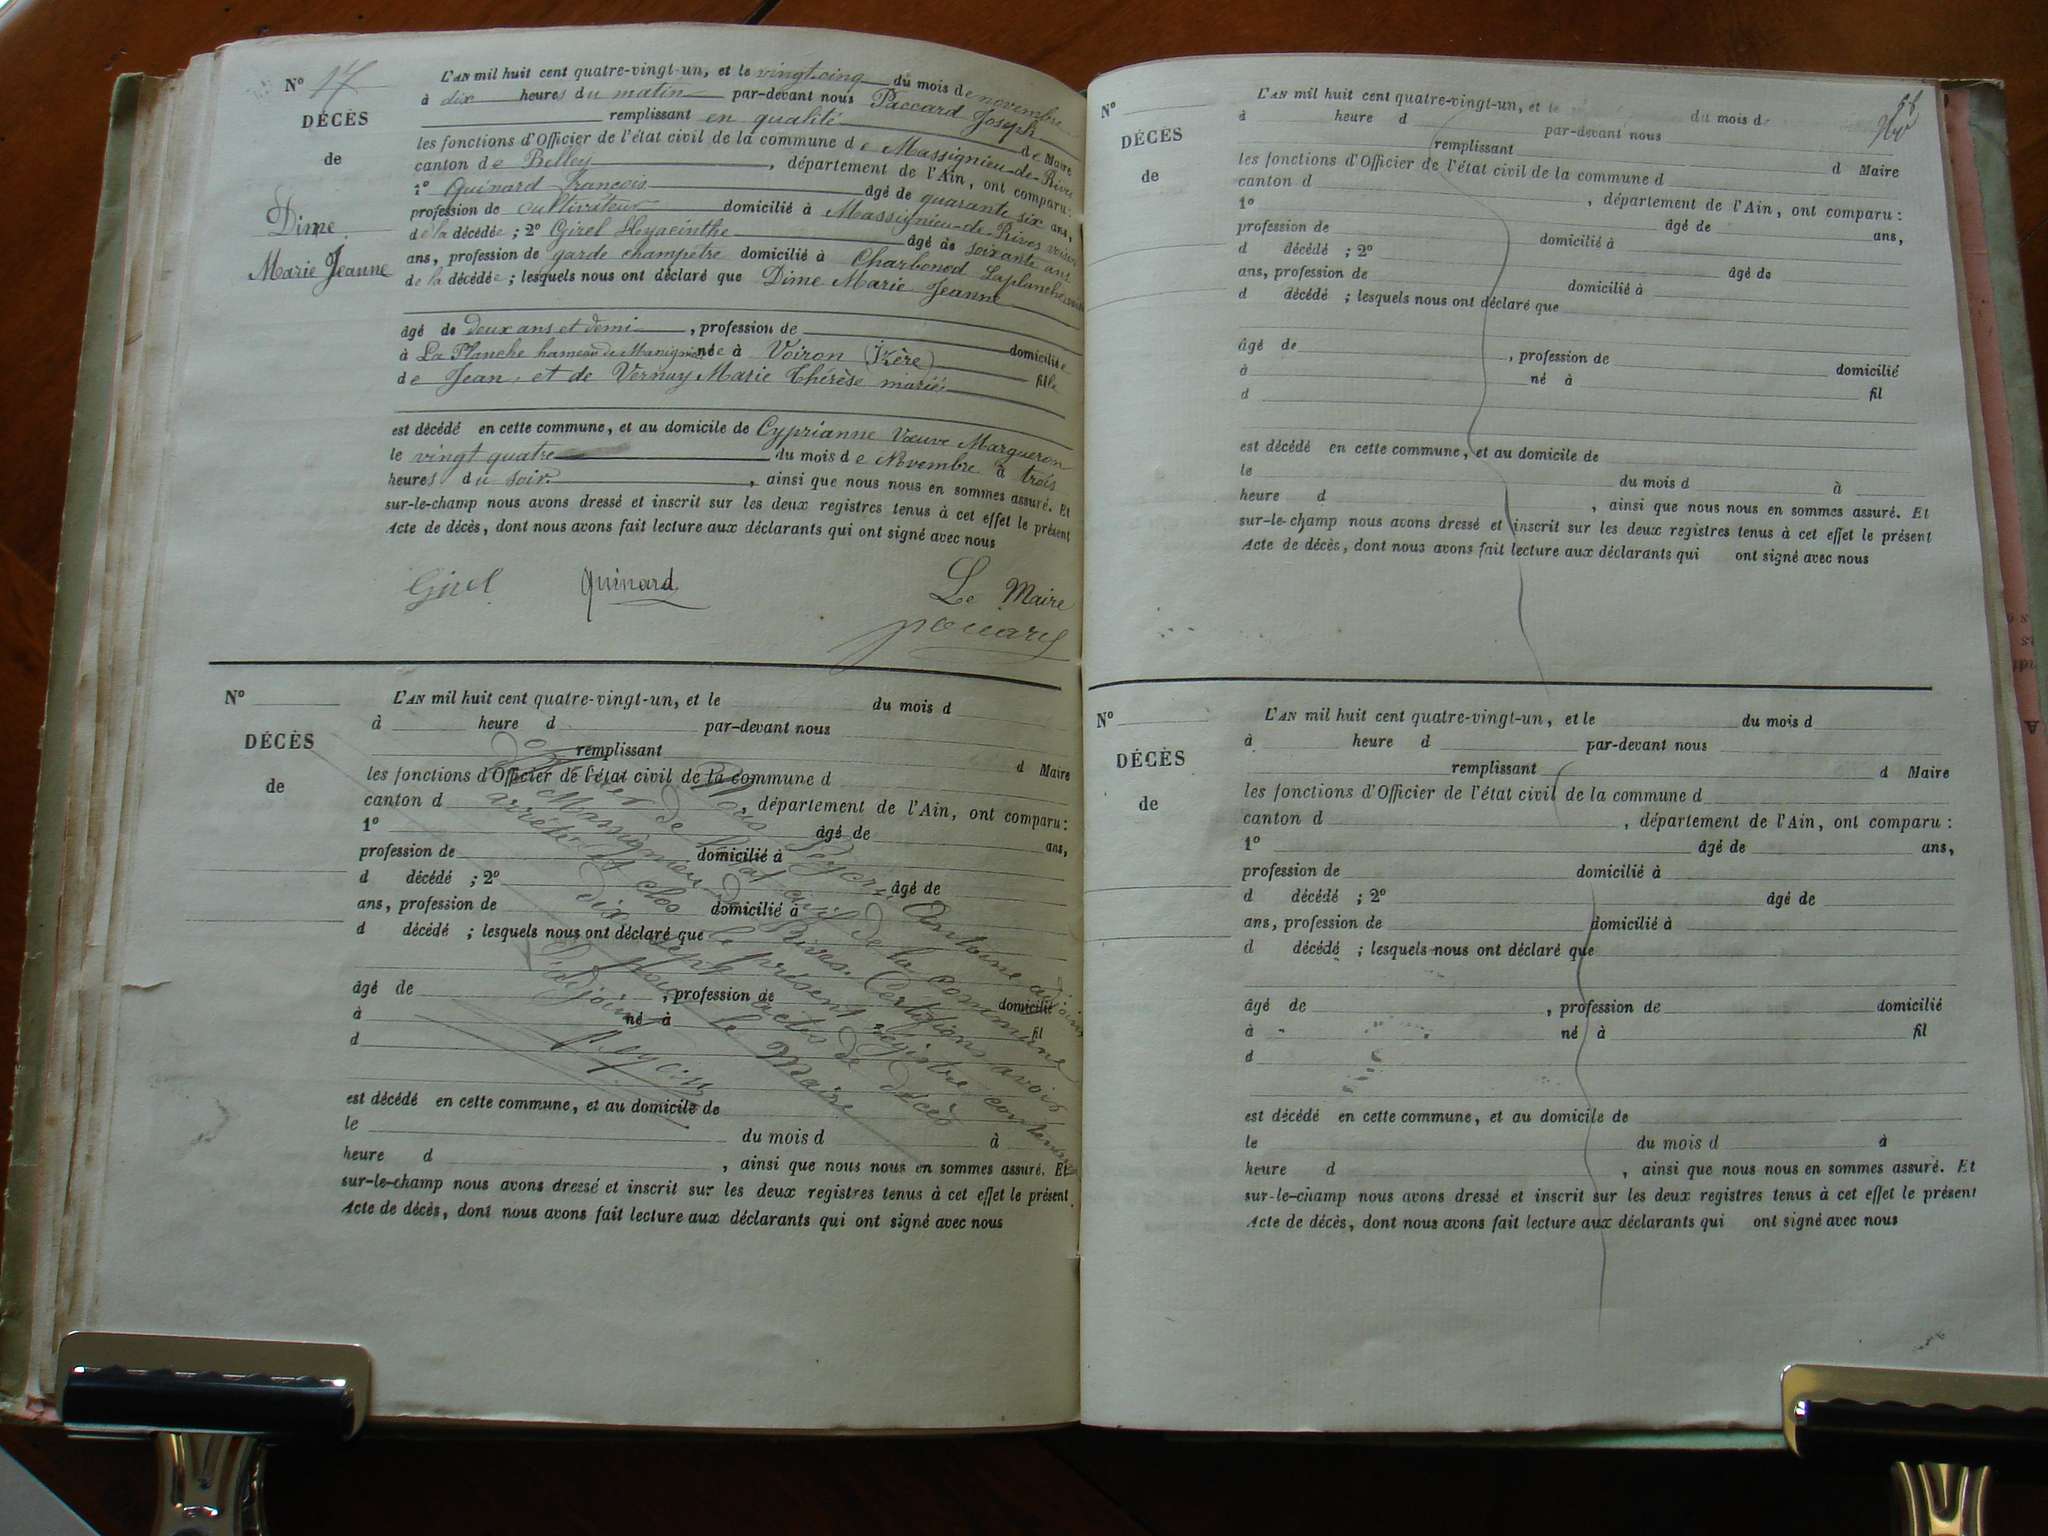 Nº 17
DÉCÈS
de
Dime
Marie Jeanne
L'AN mil huit cent quatre-vingt-un, et le vingt cinq du mois de novembre
à dix heures du matin par-devant nous Paccard Joseph
remplissant en qualité de Maire
les fonctions d'Officier de l'état civil de la commune de Massignieu-de-Rives
canton de Belley, département de l'Ain, ont comparu :
1º Quinard François âgé de quarante six ans,
profession de cultivateur domicilié à Massignieu-de-Rives voisin
de la décédée ; 2º Girel Hyacinthe âgé de soixante ans
ans, profession de garde champêtre domicilié à Charbonod Laplanche
de la décédée ; lesquels nous ont déclaré que Dime Marie Jeanne
âgé de deux ans et demi, profession de domicilié
à La Planche hameau de née à Voiron (Izère) fille
de Jean, et de Vernay Marie Thérèse mariés
est décédé en cette commune, et au domicile de Cyprianne Vœuve Margueron
le vingt quatre du mois de Novembre à trois
heures du soir, ainsi que nous nous en sommes assuré. Et
sur-le-champ nous avons dressé et inscrit sur les deux registres tenus à cet effet le présent
Acte de décès, dont nous avons fait lecture aux déclarants qui ont signé avec nous
Girel Quinard Le Maire
Nº
DÉCÈS
de
L'AN mil huit cent quatre-vingt-un, et le du mois d
à heure d par-devant nous
remplissant d Maire
les fonctions d'Officier de l'état civil de la commune d
canton d , département de l'Ain, ont comparu :
1º âgé de ans,
profession de domicilié à
d décédé ; 2º âgé de
ans, profession de domicilié à
d décédé ; lesquels nous ont déclaré que
âgé de , profession de domicilié
à né à fil
d
est décédé en cette commune, et au domicile de
le du mois d à
heure d , ainsi que nous nous en sommes assuré. Et
sur-le-champ nous avons dressé et inscrit sur les deux registres tenus à cet effet le présent
Acte de décès, dont nous avons fait lecture aux déclarants qui ont signé avec nous
Antoine adjoint
de l'état civil de la commune
Massignieu de Rives. Certifions avoir
arrêté et clos le présent registre contenant
dix sept actes de décès
Pour le Maire
L'adjoint
Nº
DÉCÈS
de
L'AN mil huit cent quatre-vingt-un, et le du mois d
à heure d par-devant nous
remplissant d Maire
les fonctions d'Officier de l'état civil de la commune d
canton d , département de l'Ain, ont comparu :
1º âgé de ans,
profession de domicilié à
d décédé ; 2º âgé de
ans, profession de domicilié à
d décédé ; lesquels nous ont déclaré que
âgé de , profession de domicilié
à né à fil
d
est décédé en cette commune, et au domicile de
le du mois d à
heure d , ainsi que nous nous en sommes assuré. Et
sur-le-champ nous avons dressé et inscrit sur les deux registres tenus à cet effet le présent
Acte de décès, dont nous avons fait lecture aux déclarants qui ont signé avec nous
Nº
DÉCÈS
de
L'AN mil huit cent quatre-vingt-un, et le du mois d
à heure d par-devant nous
remplissant d Maire
les fonctions d'Officier de l'état civil de la commune d
canton d , département de l'Ain, ont comparu :
1º âgé de ans,
profession de domicilié à
d décédé ; 2º âgé de
ans, profession de domicilié à
d décédé ; lesquels nous ont déclaré que
âgé de , profession de domicilié
à né à fil
d
est décédé en cette commune, et au domicile de
le du mois d à
heure d , ainsi que nous nous en sommes assuré. Et
sur-le-champ nous avons dressé et inscrit sur les deux registres tenus à cet effet le présent
Acte de décès, dont nous avons fait lecture aux déclarants qui ont signé avec nous